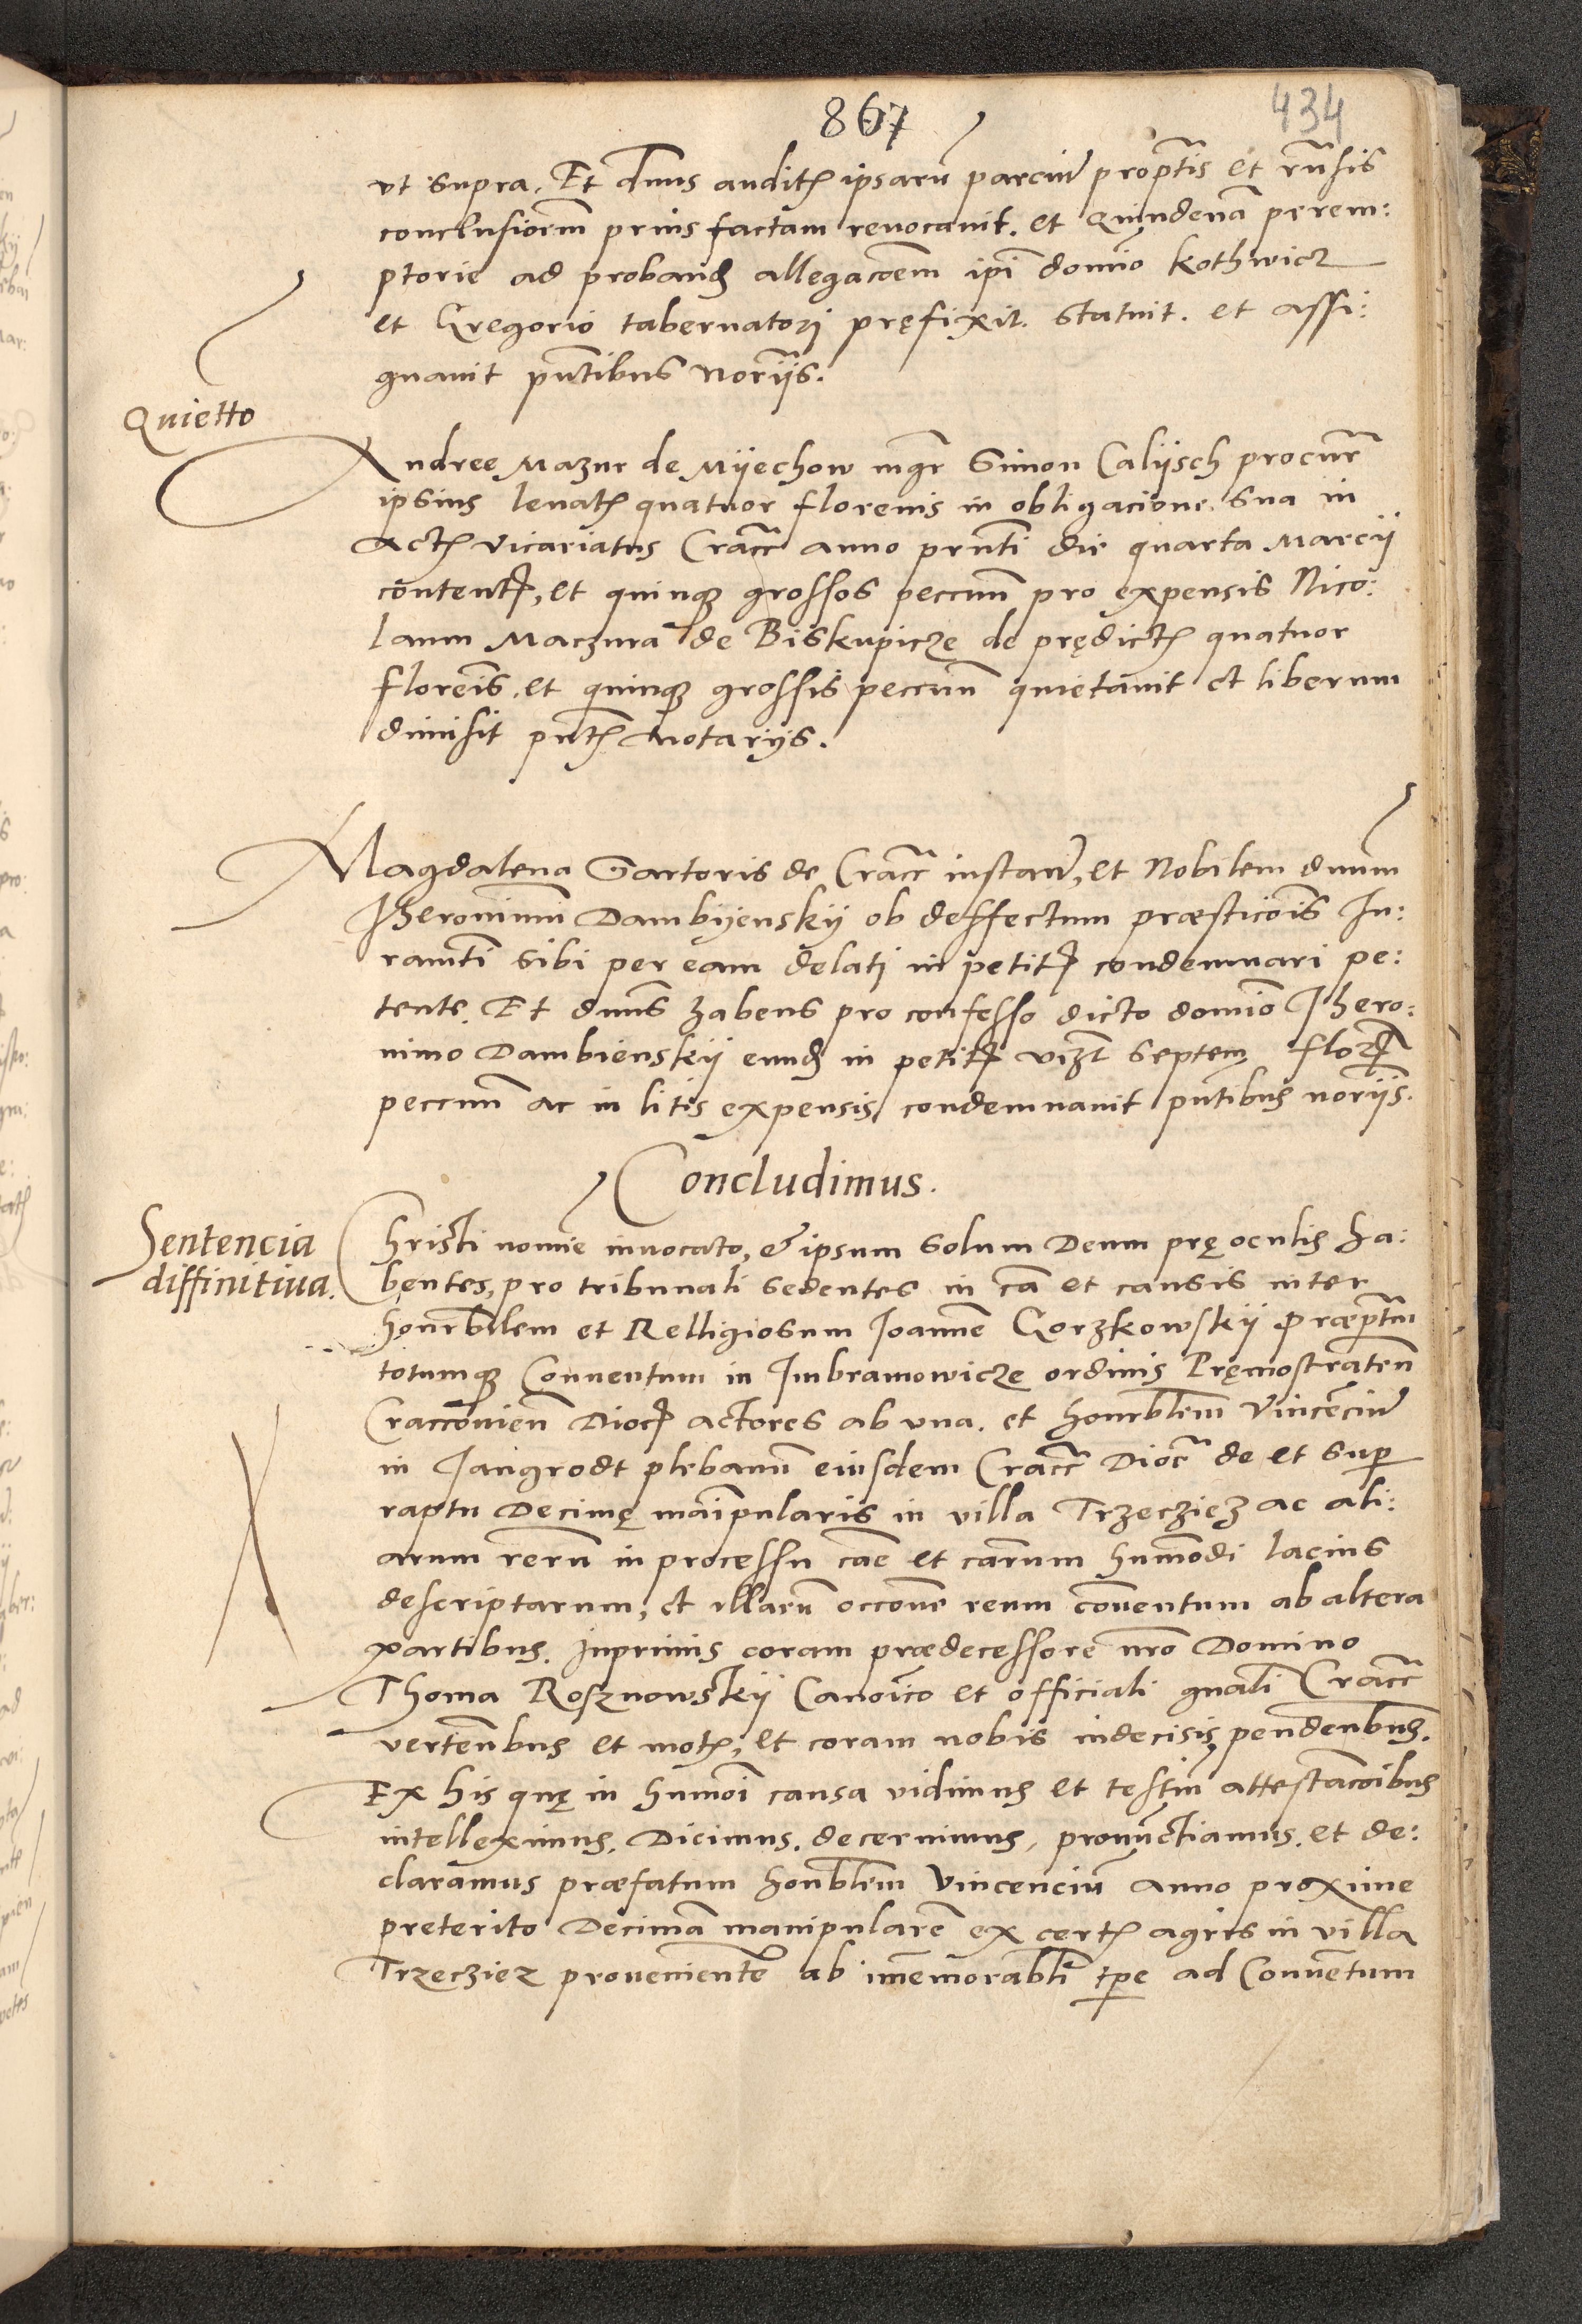 867
434
vt supra. Et dnus audit ipsarū parciū propt̄is et rn̄sis
conclusiōem prius factam reuocauit. et Quindenā perem:
ptorie ad proband allegacōem ip̄i domīo Kothwicz
et Gregorio tabernatori pręfixit. Statuit. et assi:
gnauit pn̄tibus Nor̄ijs.
Quietto
Andree Mazur de Myechow mgr̄ Simon Calijsch procur̄
ipsius leuat quatuor florenis in obligacione sua in
Act vicariatus Cracc̄ anno prn̄ti die quarta Marcij
content, et quinq grossos peccun̄ pro expensis Nico:
laum Maczura de Biskupicze de prędict quatuor
florēis, et quinq grossis peccun̄ quietauit et liberum
dimisit pn̄t Notarijs.
Magdalena Sartoris de Cracc̄ instan̄, et Nobilem dnum
Iheronimū Dambyenskij ob deffectum præsticōis Iu:
ramti sibi per eam delati in petit condemnari pe:
tente. Et dnus habens pro confesso dicto domīo Ihero:
nimo Dambienskij eund in petit vizt septem flor
peccun̄ ac in litis expensis condemnauit pn̄tibus nor̄ijs.
Concludimus.
Sentencia
diffinitiua.
Christi nomīe inuocato, & ipsum solum Deum prę oculis ha:
bentes, pro tribunali sedentes in cā et causis inter
honrb̄ilem et Relligiosum Ioannē Gorzkowskij Præpt̄um
totumq Conuentum in Imbramowicze ordinis Pręmostraten̄
Cracouien̄ Dioc actores ab vna. et honrb̄lem Vincēciū
in Jangrodt plebanū eiusdem Cracc̄ Dioc̄ de et sup
raptu Decimę maīpularis in villa Trzecziez ac ali:
arum rerū in processu cāe et cārum hum̄odi lacius
descriptarum, et illarū occōne reum cōuentum ab altera
partibus. Inprimis coram prædecessore nr̄o Domino
Thoma Rosznowskij Canoīco et officiali gnāli Cracc̄
vertēnbus et mot, et coram nobis indecisis pendenbus.
Ex his quę in humōi causa vidimus et testiū attestacōibus
intelleximus. Dicimus. decernimus, pronūctiamus. et de:
claramus præfatum honb̄lem Vincenciū anno proxime
preterito Decimā manipularē ex cert agris in villa
Trzecziez prouenientē ab īmemorabl̄i tpe ad Conuētum